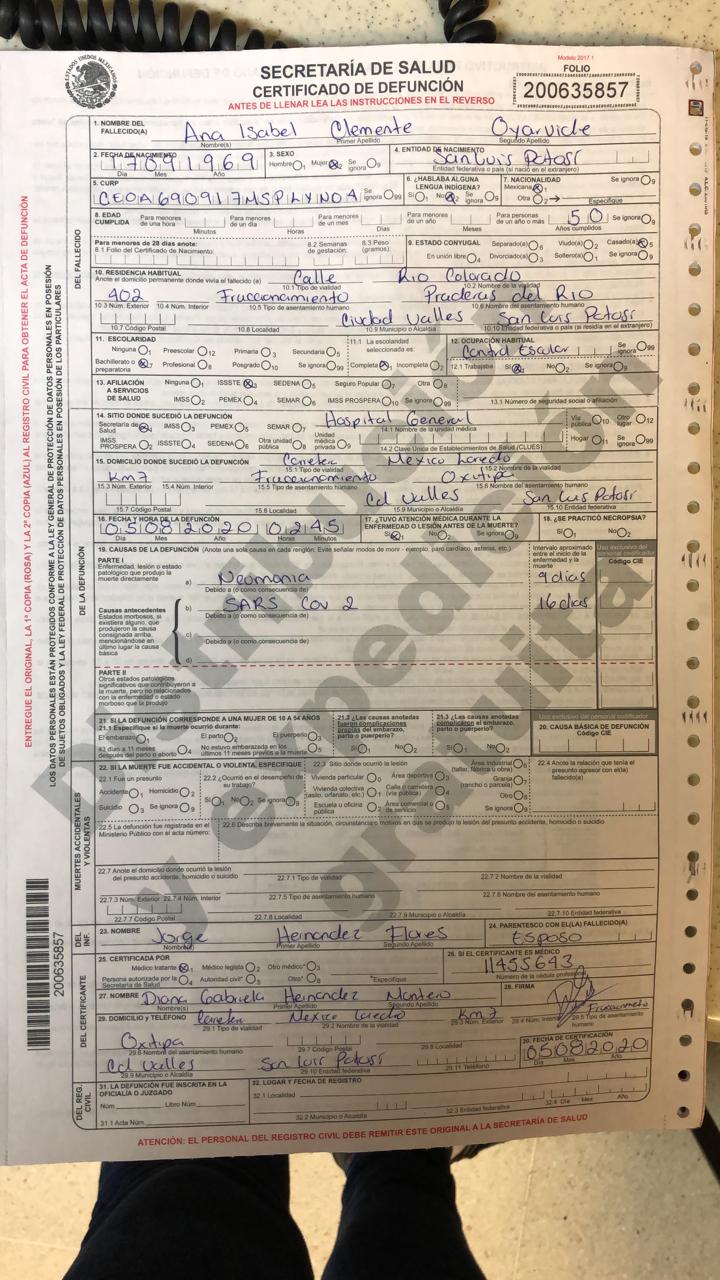 Modelo 2017.1
SECRETARÍA DE SALUD
CERTIFICADO DE DEFUNCIÓN
ANTES DE LLENAR LEA LAS INSTRUCCIONES EN EL REVERSO
FOLIO
200635857
ENTREGUE EL ORIGINAL, LA 1ª COPIA (ROSA) Y LA 2ª COPIA (AZUL) AL REGISTRO CIVIL PARA OBTENER EL ACTA DE DEFUNCIÓN
LOS DATOS PERSONALES ESTÁN PROTEGIDOS CONFORME A LA LEY GENERAL DE PROTECCIÓN DE DATOS PERSONALES EN POSESIÓN
DE SUJETOS OBLIGADOS Y LA LEY FEDERAL DE PROTECCIÓN DE DATOS PERSONALES EN POSESIÓN DE LOS PARTICULARES
Distribución
y expedición
gratuita
DEL FALLECIDO
1. NOMBRE DEL FALLECIDO(A) Ana Isabel Clemente Oyarvide
Nombre(s) Primer Apellido Segundo Apellido
2. FECHA DE NACIMIENTO 17091969 3. SEXO Hombre 1 Mujer 2 Se ignora 9 4. ENTIDAD DE NACIMIENTO San Luis Potosí
Día Mes Año Entidad federativa o país (si nació en el extranjero)
5. CURP CEOA690917MSPLYN04 Se ignora 99 6. ¿HABLABA ALGUNA LENGUA INDÍGENA? Sí 1 No 2 Se ignora 9 7. NACIONALIDAD Mexicana 1 Otra 2 Se ignora 9
Especifique
8. EDAD CUMPLIDA Para menores de una hora Minutos Para menores de un día Horas Para menores de un mes Días Para menores de un año Meses Para personas de un año o más 50 Años cumplidos Se ignora 9
Para menores de 28 días anote:
8.1 Folio del Certificado de Nacimiento: 8.2 Semanas de gestación: 8.3 Peso (gramos): 9. ESTADO CONYUGAL Separado(a) 6 Viudo(a) 2 Casado(a) 5
En unión libre 4 Divorciado(a) 3 Soltero(a) 1 Se ignora 9
10. RESIDENCIA HABITUAL
Anote el domicilio permanente donde vivía el fallecido (a) Calle Rio Colorado
10.1 Tipo de vialidad 10.2 Nombre de la vialidad
402 Fraccionamiento Praderas del Rio
10.3 Núm. Exterior 10.4 Núm. Interior 10.5 Tipo de asentamiento humano 10.6 Nombre del asentamiento humano
Ciudad Valles San Luis Potosí
10.7 Código Postal 10.8 Localidad 10.9 Municipio o Alcaldía 10.10 Entidad federativa o país (si residía en el extranjero)
11. ESCOLARIDAD 11.1 La escolaridad seleccionada es: 12. OCUPACIÓN HABITUAL
Ninguna 1 Preescolar 12 Primaria 3 Secundaria 5 Control Escolar Se ignora 99
Bachillerato o preparatoria 7 Profesional 8 Posgrado 10 Se ignora 99 Completa 1 Incompleta 2 12.1 Trabajaba Sí 1 No 2 Se ignora 9
13. AFILIACIÓN A SERVICIOS DE SALUD Ninguna 1 ISSSTE 3 SEDENA 5 Seguro Popular 7 Otra 8
IMSS 2 PEMEX 4 SEMAR 6 IMSS PROSPERA 10 Se ignora 99 13.1 Número de seguridad social o afiliación
DE LA DEFUNCIÓN
14. SITIO DONDE SUCEDIÓ LA DEFUNCIÓN Hospital General
Secretaría de Salud 1 IMSS 3 PEMEX 5 SEMAR 7 14.1 Nombre de la unidad médica Vía pública 10 Otro lugar 12
IMSS PROSPERA 2 ISSSTE 4 SEDENA 6 Otra unidad pública 8 Unidad médica privada 9 14.2 Clave Única de Establecimientos de Salud (CLUES) Hogar 11 Se ignora 99
15. DOMICILIO DONDE SUCEDIÓ LA DEFUNCIÓN Carretera Mexico Laredo
15.1 Tipo de vialidad 15.2 Nombre de la vialidad
Km7 Fraccionamiento Oxitipa
15.3 Núm. Exterior 15.4 Núm. Interior 15.5 Tipo de asentamiento humano 15.6 Nombre del asentamiento humano
Cd Valles San Luis Potosí
15.7 Código Postal 15.8 Localidad 15.9 Municipio o Alcaldía 15.10 Entidad federativa
16. FECHA Y HORA DE LA DEFUNCIÓN 05082020 0245 17. ¿TUVO ATENCIÓN MÉDICA DURANTE LA ENFERMEDAD O LESIÓN ANTES DE LA MUERTE? 18. ¿SE PRACTICÓ NECROPSIA?
Día Mes Año Horas Minutos Sí 1 No 2 Sí 1 No 2
19. CAUSAS DE LA DEFUNCIÓN (Anote una sola causa en cada renglón. Evite señalar modos de morir - ejemplo: paro cardiaco, astenia, etc.)
Intervalo aproximado entre el inicio de la enfermedad y la muerte
Uso exclusivo del personal codificador
Código CIE
PARTE I
Enfermedad, lesión o estado patológico que produjo la muerte directamente a) Neumonia 9 dias
Debido a (o como consecuencia de)
Causas antecedentes b) SARS Cov 2 16 dias
Estados morbosos, si existiera alguno, que produjeron la causa consignada arriba, mencionándose en último lugar la causa básica
Debido a (o como consecuencia de)
c)
Debido a (o como consecuencia de)
d)
PARTE II
Otros estados patológicos significativos que contribuyeron a la muerte, pero no relacionados con la enfermedad o estado morboso que la produjo
21. SI LA DEFUNCIÓN CORRESPONDE A UNA MUJER DE 10 A 54 AÑOS
21.1 Especifique si la muerte ocurrió durante:
El embarazo 1 El parto 2 El puerperio 3
43 días a 11 meses después del parto o aborto 4 No estuvo embarazada en los últimos 11 meses previos a la muerte 5
21.2 ¿Las causas anotadas fueron complicaciones propias del embarazo, parto o puerperio? Sí 1 No 2
21.3 ¿Las causas anotadas complicaron el embarazo, parto o puerperio? Sí 1 No 2
Uso exclusivo del personal codificador
20. CAUSA BÁSICA DE DEFUNCIÓN
Código CIE
MUERTES ACCIDENTALES Y VIOLENTAS
22. SI LA MUERTE FUE ACCIDENTAL O VIOLENTA, ESPECIFIQUE
22.1 Fue un presunto
Accidente 1 Homicidio 2
Suicidio 3 Se ignora 9
22.2 ¿Ocurrió en el desempeño de su trabajo?
Sí 1 No 2 Se ignora 9
22.3 Sitio donde ocurrió la lesión
Vivienda particular 0 Área deportiva 3 Área industrial (taller, fábrica u obra) 6
Vivienda colectiva (asilo, orfanato, etc.) 1 Calle o carretera (vía pública) 4 Granja (rancho o parcela) 7
Escuela u oficina pública 2 Área comercial o de servicios 5 Otro 8
Se ignora 9
22.4 Anote la relación que tenía el presunto agresor con el(la) fallecido(a)
22.5 La defunción fue registrada en el Ministerio Público con el acta número:
22.6 Describa brevemente la situación, circunstancia o motivos en que se produjo la lesión del presunto accidente, homicidio o suicidio
22.7 Anote el domicilio donde ocurrió la lesión del presunto accidente, homicidio o suicidio
22.7.1 Tipo de vialidad 22.7.2 Nombre de la vialidad
22.7.3 Núm. Exterior 22.7.4 Núm. Interior 22.7.5 Tipo de asentamiento humano 22.7.6 Nombre del asentamiento humano
22.7.7 Código Postal 22.7.8 Localidad 22.7.9 Municipio o Alcaldía 22.7.10 Entidad federativa
DEL INF.
23. NOMBRE Jorge Hernandez Flores
Nombre(s) Primer Apellido Segundo Apellido
24. PARENTESCO CON EL(LA) FALLECIDO(A)
Esposo
DEL CERTIFICANTE
25. CERTIFICADA POR
Médico tratante 1 Médico legista 2 Otro médico* 3
Persona autorizada por la Secretaría de Salud 4 Autoridad civil* 5 Otro* 8 *Especifique
26. SI EL CERTIFICANTE ES MÉDICO
11455643
Número de la cédula profesional
27. NOMBRE Diana Gabriela Hernandez Montero
Nombre(s) Primer Apellido Segundo Apellido
28. FIRMA
29. DOMICILIO Y TELÉFONO Carretera Mexico Laredo Km7
29.1 Tipo de vialidad 29.2 Nombre de la vialidad 29.3 Núm. Exterior 29.4 Núm. Interior 29.5 Tipo de asentamiento humano
Oxitipa
29.6 Nombre del asentamiento humano 29.7 Código Postal 29.8 Localidad
Cd Valles San Luis Potosí
29.9 Municipio o Alcaldía 29.10 Entidad federativa 29.11 Teléfono
30. FECHA DE CERTIFICACIÓN
05082020
Día Mes Año
DEL REG. CIVIL
31. LA DEFUNCIÓN FUE INSCRITA EN LA OFICIALÍA O JUZGADO
Núm. Libro Núm.
31.1 Acta Núm.
32. LUGAR Y FECHA DE REGISTRO
32.1 Localidad
32.2 Municipio o Alcaldía 32.3 Entidad federativa 32.4 Día Mes Año
200635857
ATENCIÓN: EL PERSONAL DEL REGISTRO CIVIL DEBE REMITIR ESTE ORIGINAL A LA SECRETARÍA DE SALUD